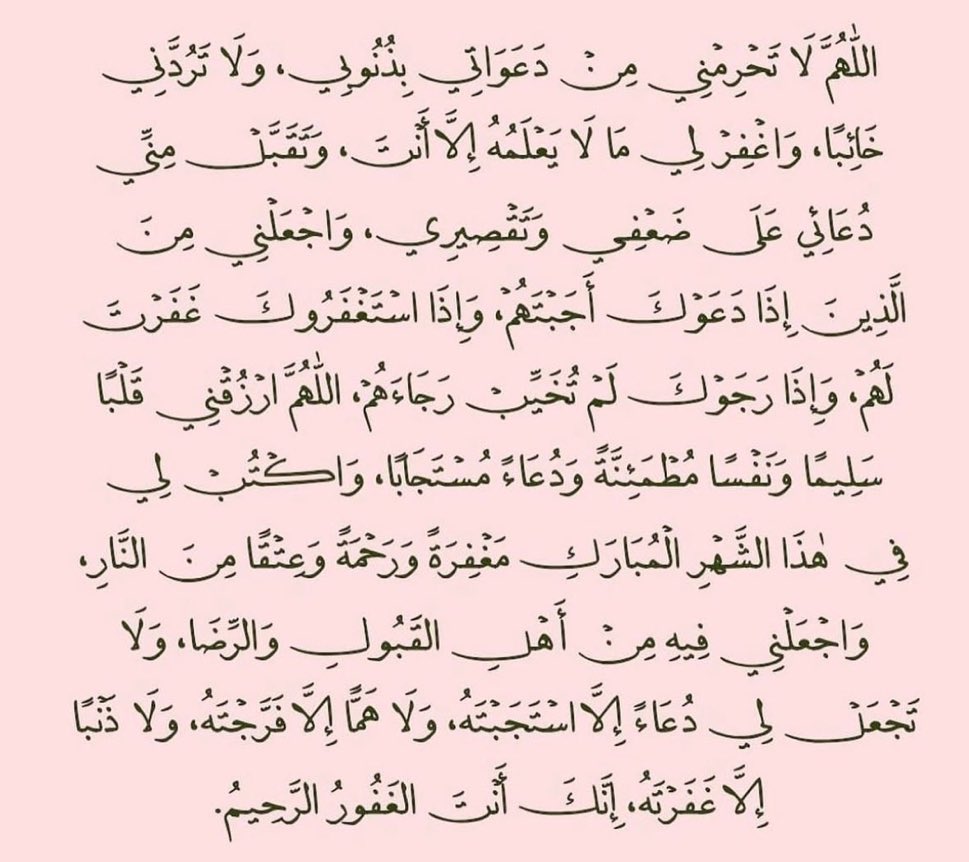 اللّٰهُمَّ لَا تَحْرِمْنِي مِنْ دَعَوَاتِي بِذُنُوبِي، وَلَا تَرُدَّنِي
خَائِبًا، وَاغْفِرْ لِي مَا لَا يَعْلَمُهُ إِلَّا أَنْتَ، وَتَقَبَّلْ مِنِّي
دُعَائِي عَلَى ضَعْفِي وَتَقْصِيرِي، وَاجْعَلْنِي مِنَ
الَّذِينَ إِذَا دَعَوْكَ أَجَبْتَهُمْ، وَإِذَا اسْتَغْفَرُوكَ غَفَرْتَ
لَهُمْ، وَإِذَا رَجَوْكَ لَمْ تُخَيِّبْ رَجَاءَهُمْ، اللّٰهُمَّ ارْزُقْنِي قَلْبًا
سَلِيمًا وَنَفْسًا مُطْمَئِنَّةً وَدُعَاءً مُسْتَجَابًا، وَاكْتُبْ لِي
فِي هٰذَا الشَّهْرِ الْمُبَارَكِ مَغْفِرَةً وَرَحْمَةً وَعِتْقًا مِنَ النَّارِ،
وَاجْعَلْنِي فِيهِ مِنْ أَهْلِ القَبُولِ وَالرِّضَا، وَلَا
تَجْعَلْ لِي دُعَاءً إِلَّا اسْتَجَبْتَهُ، وَلَا هَمًّا إِلَّا فَرَّجْتَهُ، وَلَا ذَنْبًا
إِلَّا غَفَرْتَهُ، إِنَّكَ أَنْتَ الغَفُورُ الرَّحِيمُ.